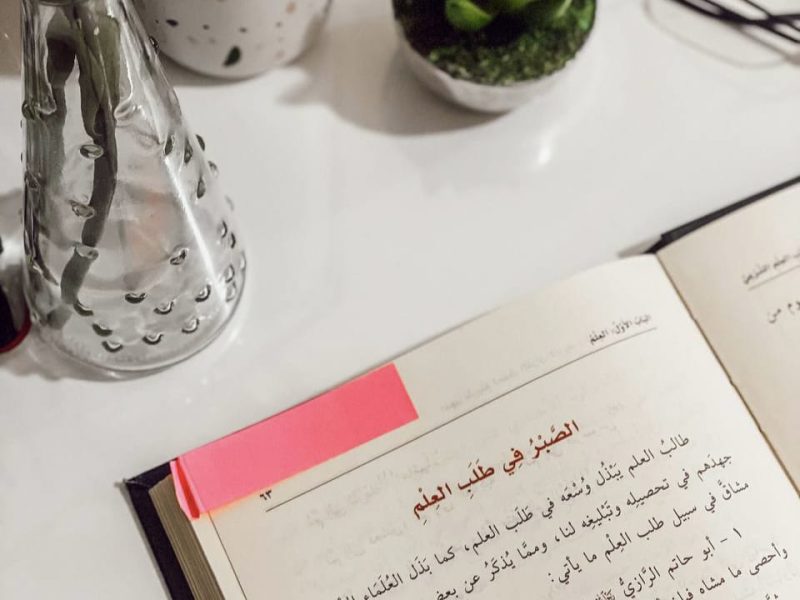 البَابُ الأوَّلُ: العِلْمُ
٦٣
الصَّبْرُ فِي طَلَبِ العِلْمِ
طالبُ العلم يَبْذُل وُسْعَه في طَلَب العلم، كما بَذَل العُلَمَاء
جهدَهم في تحصيلِه وتَبْليغِه لنا، وممَّا يُذكَرُ عن بعض
مشاقَّ في سبيل طلب العِلْم ما يأتي:
١ - أبو حاتم الرَّازيُّ
وأحصى ما مشاه
وم من